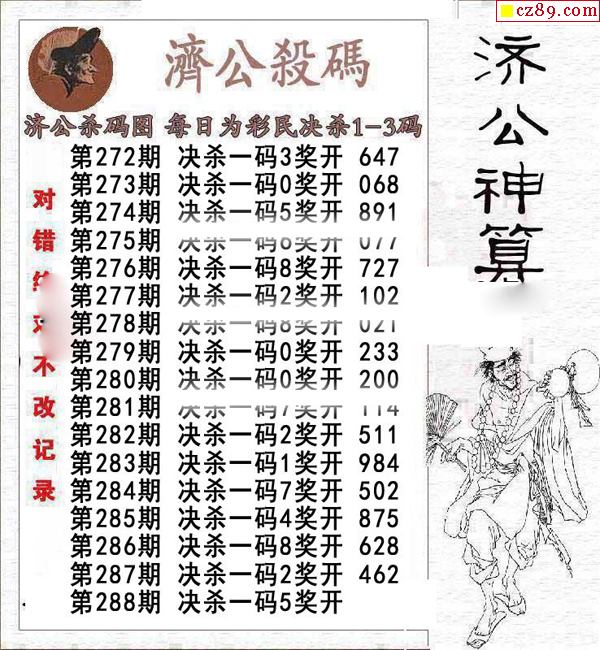 cz89.com
濟公殺碼
济公杀码图 每日为彩民决杀1-3码
第272期 决杀一码3奖开 647
第273期 决杀一码0奖开 068
第274期 决杀一码5奖开 891
第275期 决杀一码6奖开 077
第276期 决杀一码8奖开 727
第277期 决杀一码2奖开 102
第278期 决杀一码8奖开 021
第279期 决杀一码0奖开 233
第280期 决杀一码0奖开 200
第281期 决杀一码7奖开 114
第282期 决杀一码2奖开 511
第283期 决杀一码1奖开 984
第284期 决杀一码7奖开 502
第285期 决杀一码4奖开 875
第286期 决杀一码8奖开 628
第287期 决杀一码2奖开 462
第288期 决杀一码5奖开
对错不改记录
济公神算